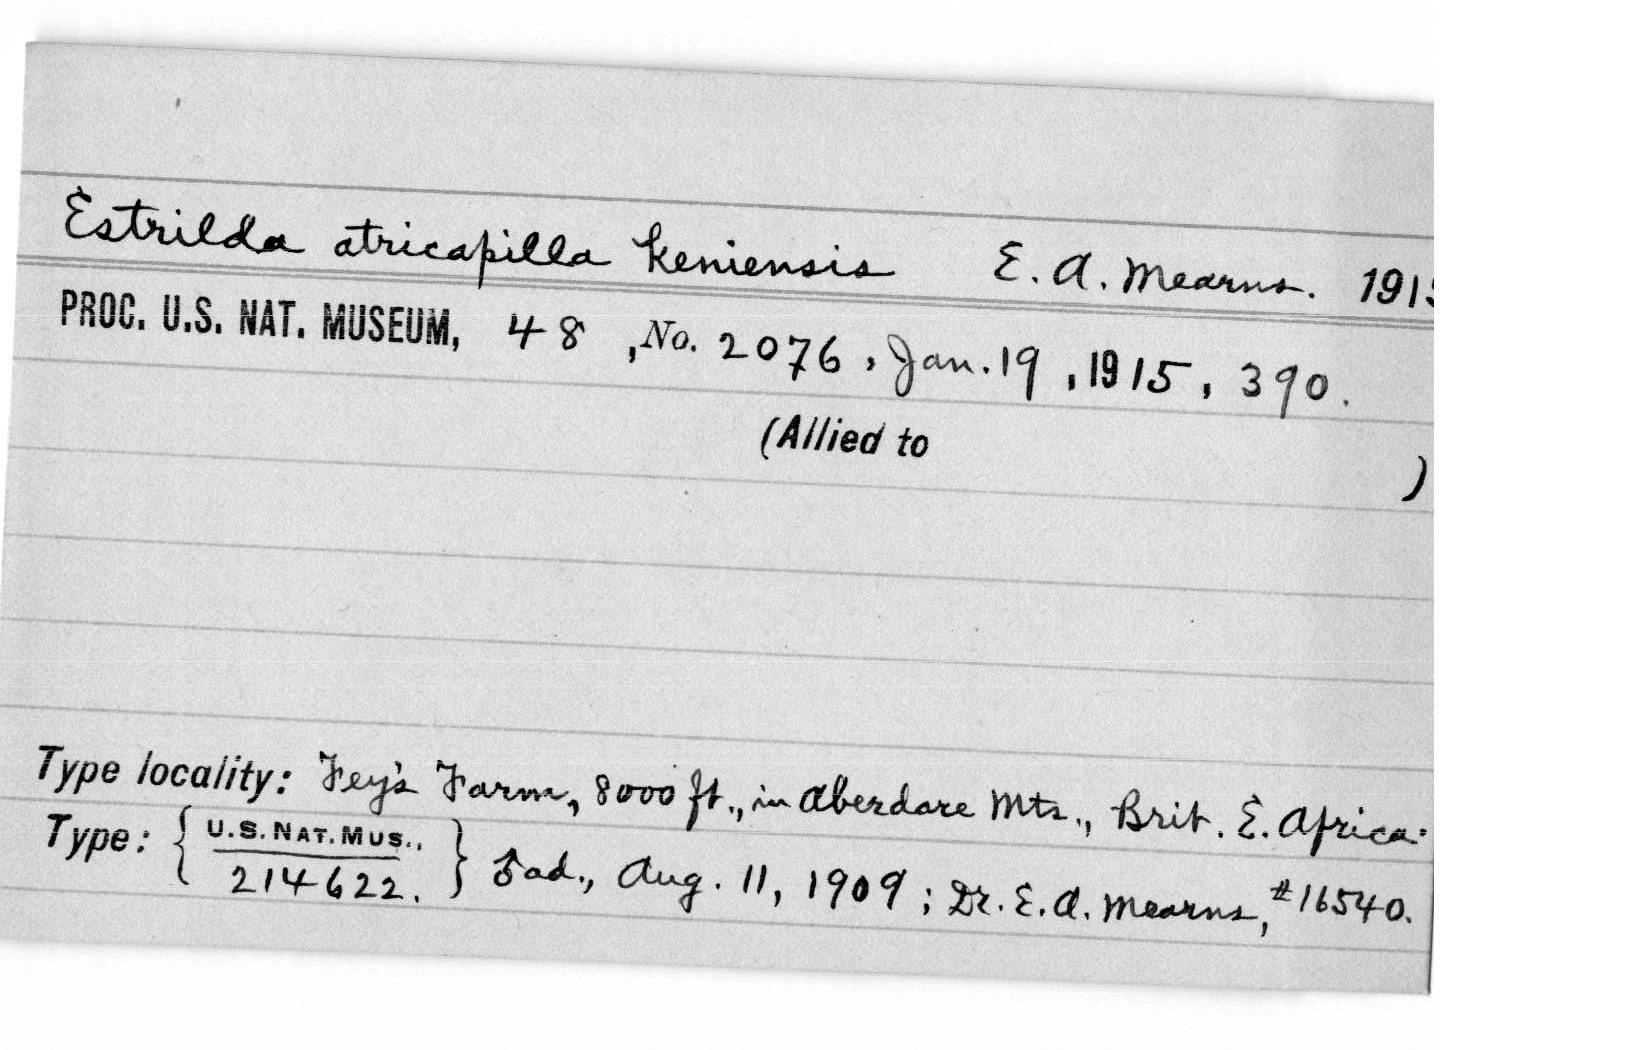 Estrilda atricapilla keniensis E. A. Mearns. 1915
PROC. U.S. NAT. MUSEUM, 48, No. 2076, Jan. 19, 1915, 390.
(Allied to )
Type locality: Fey's Farm, 8000 ft., in Aberdare Mts., Brit. E. Africa.
Type: { U.S. NAT. MUS., } ad., Aug. 11, 1909; Dr. E. A. Mearns, #16540.
214622.